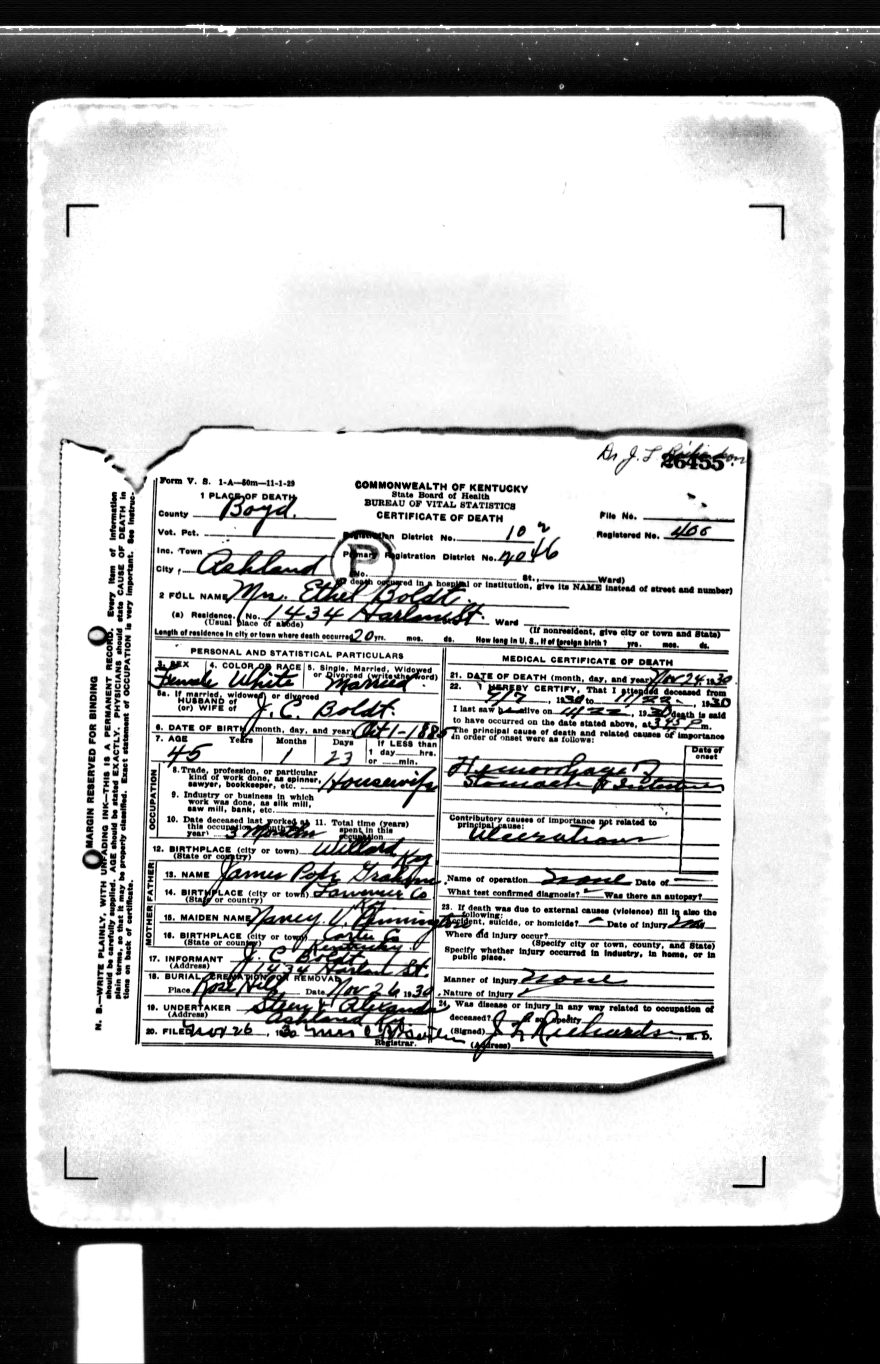 Dr J. L. Richardson
26455
Form V. S. 1-A—50m—11-1-29
COMMONWEALTH OF KENTUCKY
State Board of Health
BUREAU OF VITAL STATISTICS
CERTIFICATE OF DEATH
1 PLACE OF DEATH
County Boyd.
File No.
Vot. Pct. Registration District No. 10 2
Registered No. 406
Inc. Town
Primary Registration District No. 2046
City Ashland No. St., Ward)
P
death occurred in a hospital or institution, give its NAME instead of street and number)
2 FULL NAME Mrs. Ethel Boldt.
(a) Residence. No. 1434 Harlan St. Ward
(Usual place of abode) (If nonresident, give city or town and State)
Length of residence in city or town where death occurred 20 yrs. mos. ds. How long in U. S., if of foreign birth? yrs. mos. ds.
PERSONAL AND STATISTICAL PARTICULARS
3. SEX 4. COLOR OR RACE 5. Single, Married, Widowed
or Divorced (write the word)
Female White Married.
5a. If married, widowed, or divorced
HUSBAND of
(or) WIFE of J. C. Boldt.
6. DATE OF BIRTH (month, day, and year) Oct 1-1885
7. AGE Years Months Days If LESS than
1 day ......hrs.
or ......min.
45 1 23
OCCUPATION
8. Trade, profession, or particular
kind of work done, as spinner,
sawyer, bookkeeper, etc. Housewife
9. Industry or business in which
work was done, as silk mill,
saw mill, bank, etc.
10. Date deceased last worked at 11. Total time (years)
this occupation (month and spent in this
year) 3 Months occupation
12. BIRTHPLACE (city or town) Willard
(State or country) Ky
FATHER
13. NAME James Pope Graham
14. BIRTHPLACE (city or town) Lawrence Co
(State or country) Ky
MOTHER
15. MAIDEN NAME Nancy V. Pennington
16. BIRTHPLACE (city or town) Carter Co
(State or country) Kentucky
17. INFORMANT J. C. Boldt
(Address) 1434 Harlan St.
18. BURIAL, CREMATION OR REMOVAL
Place Rose Hill Date Nov 26, 1930
19. UNDERTAKER Steen & Alexander
(Address) Ashland Ky.
20. FILED Nov 26, 1930 Mrs
Registrar.
MEDICAL CERTIFICATE OF DEATH
21. DATE OF DEATH (month, day, and year) Nov 24 1930
22. I HEREBY CERTIFY, That I attended deceased from
1930 to 11/22, 1930
I last saw alive on 11/22, 1930 death is said
to have occurred on the date stated above, at 345 P m.
The principal cause of death and related causes of importance
in order of onset were as follows:
Date of
onset
Hemorrhage
Stomach & Intestines
Contributory causes of importance not related to
principal cause:
Ulcerations
Name of operation none Date of
What test confirmed diagnosis? Was there an autopsy?
23. If death was due to external causes (violence) fill in also the
following:
Accident, suicide, or homicide? Date of injury
Where did injury occur?
(Specify city or town, county, and State)
Specify whether injury occurred in industry, in home, or in
public place.
Manner of injury none
Nature of injury
24. Was disease or injury in any way related to occupation of
deceased? If so, specify
(Signed) J. L. Richardson, M. D.
(Address)
MARGIN RESERVED FOR BINDING
N. B.—WRITE PLAINLY, WITH UNFADING INK—THIS IS A PERMANENT RECORD. Every item of information
should be carefully supplied. AGE should be stated EXACTLY. PHYSICIANS should state CAUSE OF DEATH in
plain terms, so that it may be properly classified. Exact statement of OCCUPATION is very important. See instruc-
tions on back of certificate.